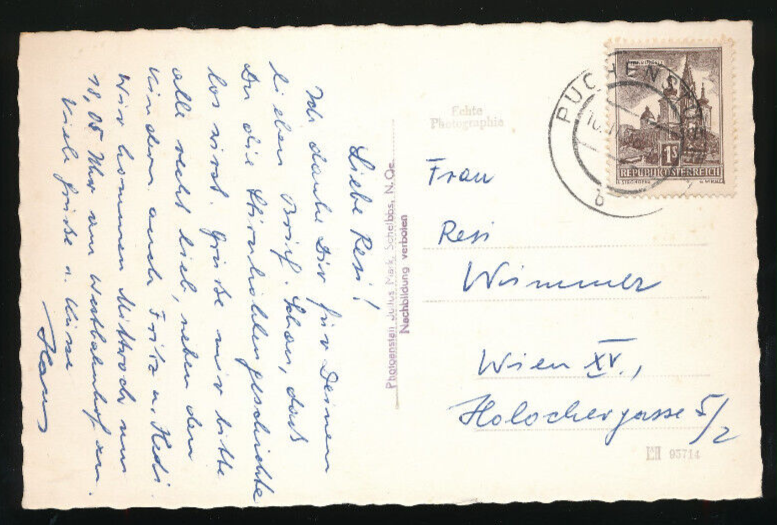 Liebe Resi!
Ich danke Dir für Deinen
lieben Brief. Schau, daß
Du die Stirnhöhlengeschichte
los wirst. Grüße mir bitte
alle recht lieb, neben den
Kindern auch Fritz u. Hedi.
Wir kommen Mittwoch um
18,05 Uhr am Westbahnhof an.
Viele Grüße u. Küsse
Hans
Photoanstalt Julius Mark, Scheibbs, N.Oe.
Nachbildung verboten
Echte
Photographie
PUCHENSTUBEN
b
1S
REPUBLIK ÖSTERREICH
Frau
Resi
Wimmer
Wien XV.,
Holochergasse 5/2
93714